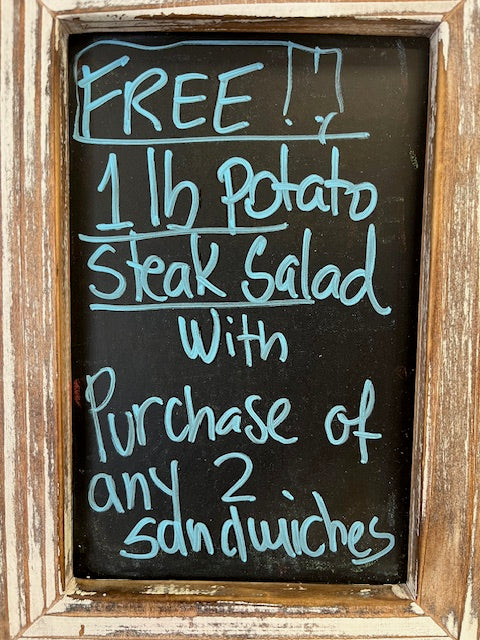 FREE!!
1 lb Potato
Steak Salad
With
Purchase of
any 2
sandwiches